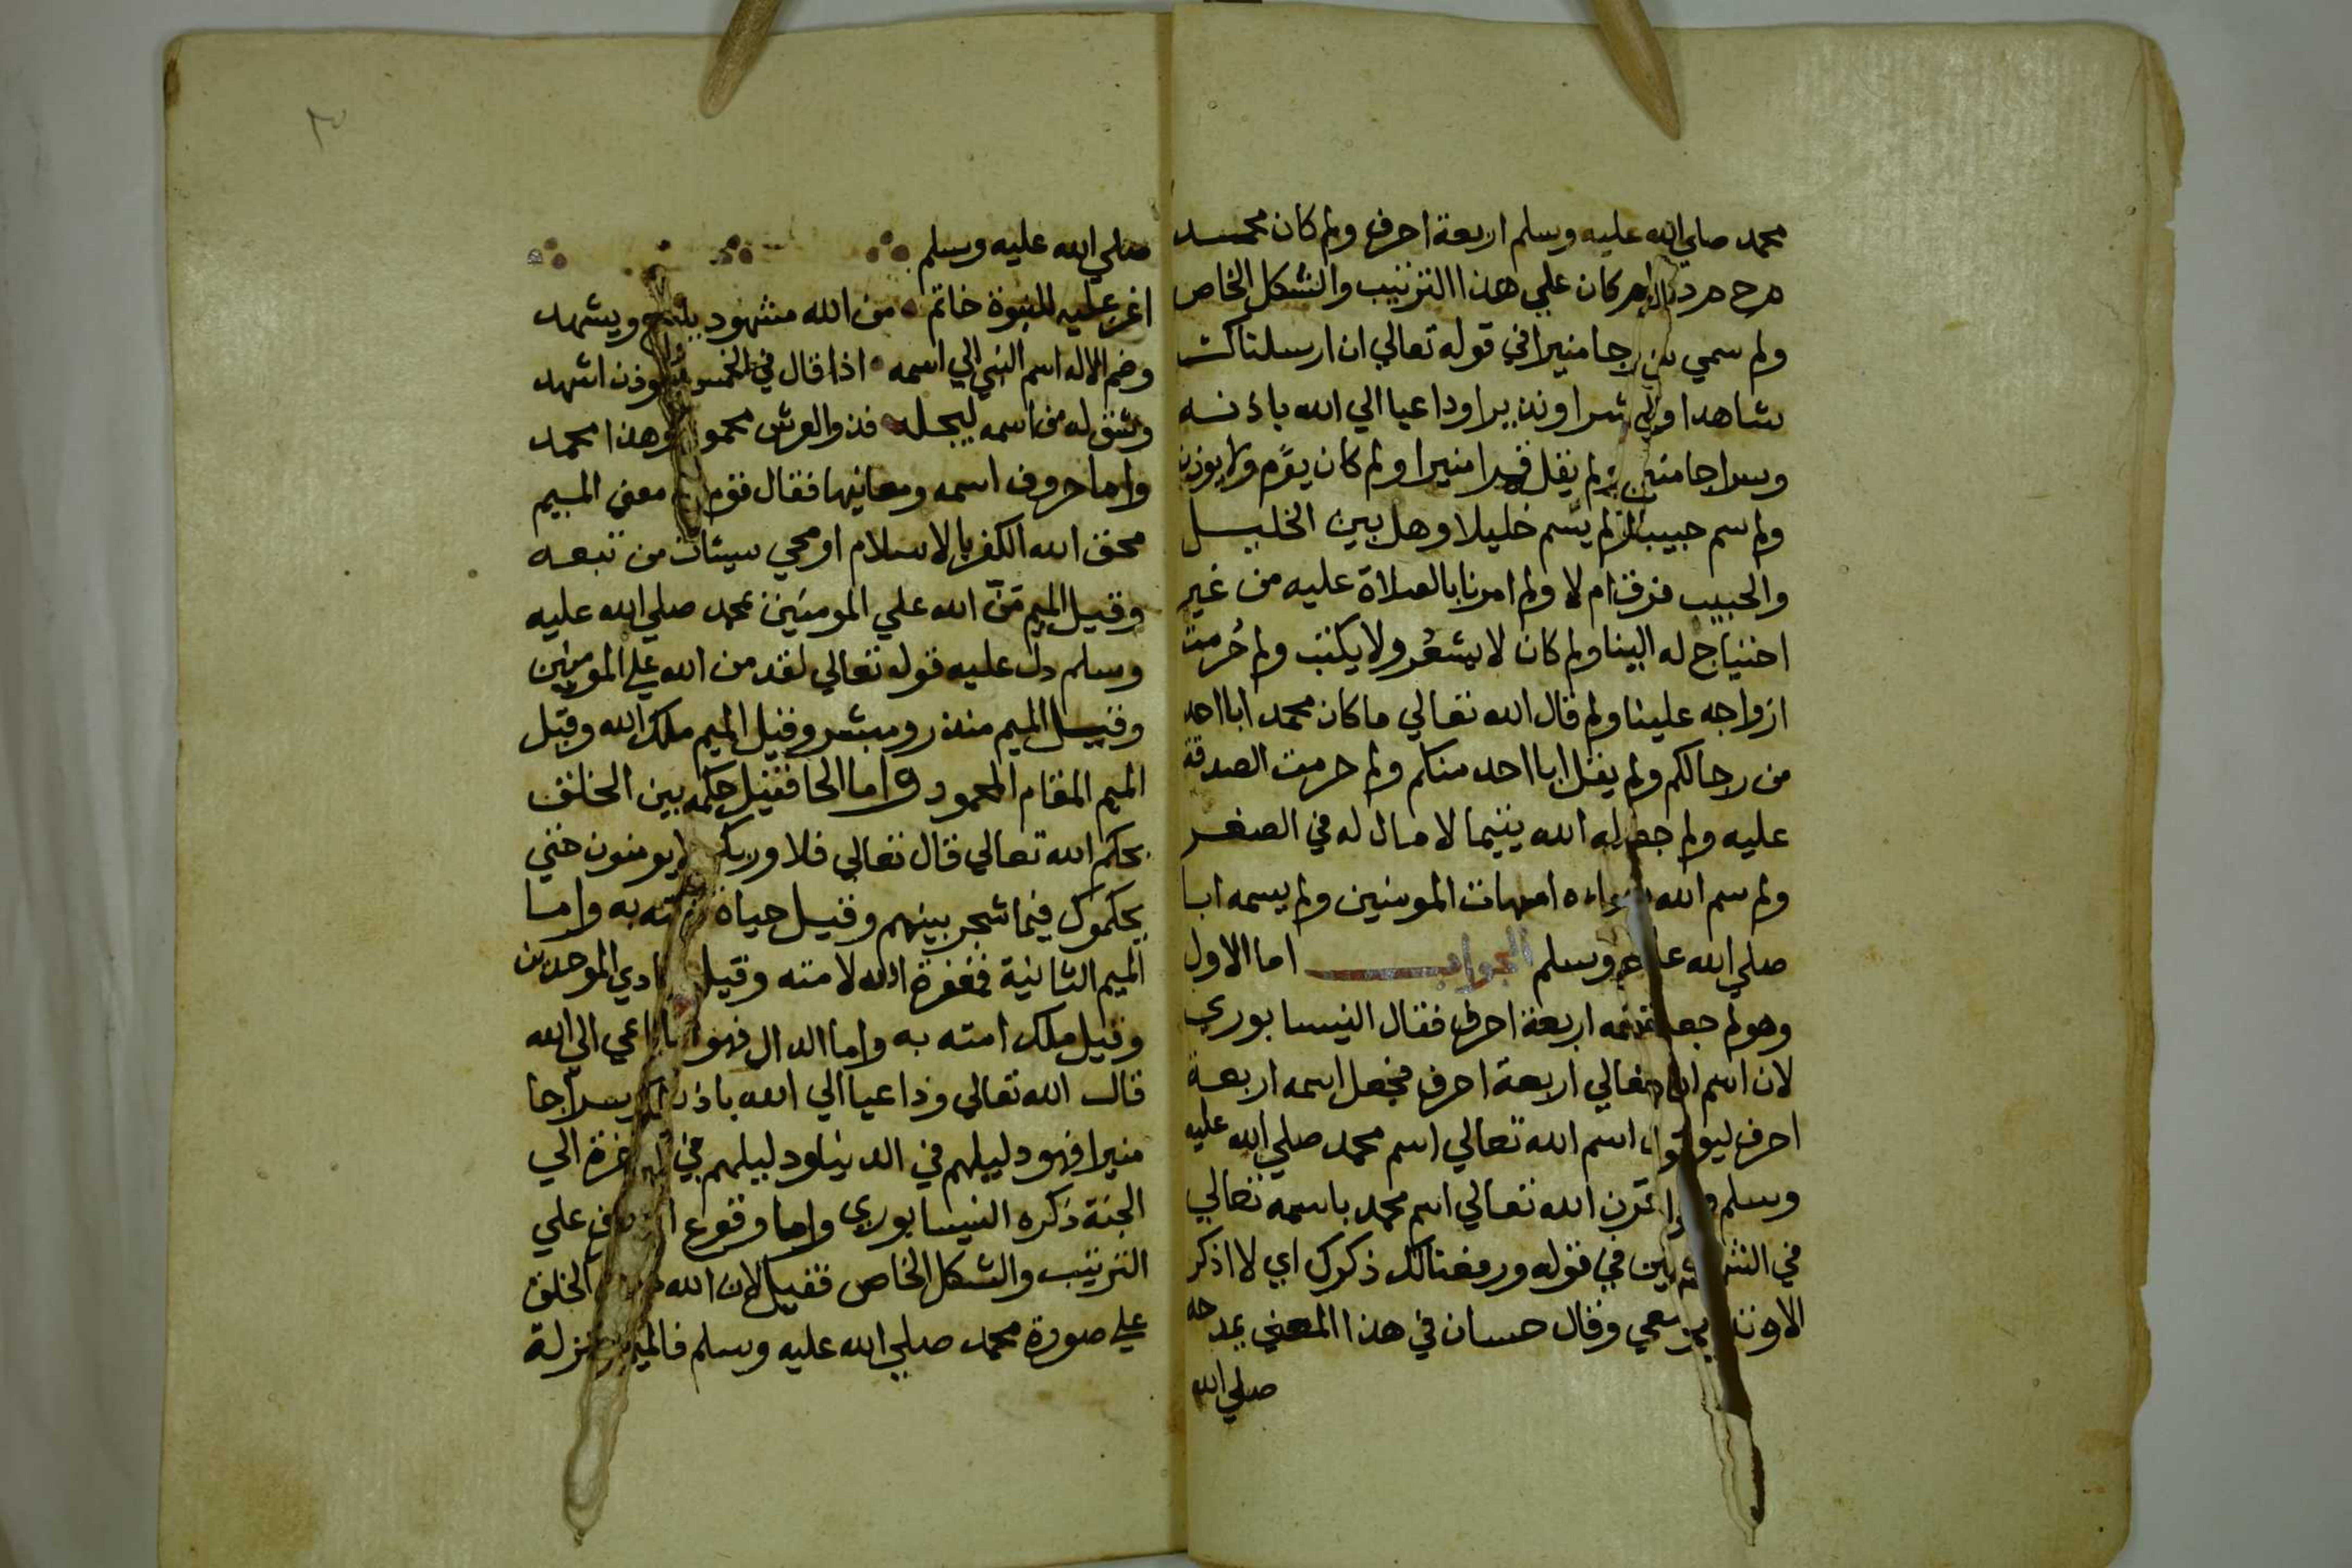 محمد صلي الله عليه وسلم اربعة احرف ولم كان محمد
م ح م د ولم كان علي هذا الترتيب والشكل الخاص
ولم سمي سراجا منيرا في قوله تعالي انا ارسلناك
شاهدا ومبشرا ونذيرا وداعيا الي الله باذنه
وسراجا منيرا ولم يقل قمرا منيرا ولم كان يؤم ولا يوذن
ولم سم حبيبا ولم يسم خليلا وهل بين الخليل
والحبيب فرق ام لا ولم امرنا بالصلاة عليه من غير
احتياج له الينا ولم كان لا يشعر ولا يكتب ولم حُرمت
ازواجه علينا ولم قال الله تعالي ما كان محمد ابا احد
من رجالكم ولم يقل ابا احد منكم ولم حرمت الصدقة
عليه ولم جعله الله يتيما لا مال له في الصغر
ولم سم الله نساءه امهات المومنين ولم يسمه ابا
صلي الله عليه وسلم الجواب اما الاول
وهو لم جعل اسمه اربعة احرف فقال النيسابوري
لان اسم الله تعالي اربعة احرف فجعل اسمه اربعة
احرف ليوافق اسم الله تعالي اسم محمد صلي الله عليه
وسلم قرن الله تعالي اسم محمد باسمه تعالي
في في قوله ورفعنالك ذكرك اي لا اذكر
الا وتذكر معي وقال حسان في هذا المعني يمدحه
صلي الله
٣
صلي الله عليه وسلم
اغر عليه للنبوة خاتم من الله مشهود يلوح ويشهد
وضم الاله اسم النبي الي اسمه اذا قال في الخمس الموذن اشهد
وشق له من اسمه ليجله فذو العرش محمود وهذا محمد
واما حروف اسمه ومعانيها فقال قوم معني الميم
محق الله الكفر بالاسلام او محي سيئات من تبعه
وقيل الميم مَنّ الله علي المومنين بمحمد صلي الله عليه
وسلم دل عليه قوله تعالي لقد من الله علي المومنين
وقيل الميم منذر ومبشر وقيل الميم ملك الله وقيل
الميم المقام المحمود واما الحا فقيل حكمه بين الخلق
بحكم الله تعالي قال تعالي فلا وربك لا يومنون حتي
يحكموك فيما شجر بينهم وقيل حياة امته به واما
الميم الثانية فمغفرة الله لامته وقيل منادي الموحدين
وقيل ملك امته به واما الدال فهو الداعي الي الله
قال الله تعالي وداعيا الي الله باذنه وسراجا
منيرا فهو دليلهم في الدنيا ودليلهم في الاخرة الي
الجنة ذكره النيسابوري واما وقوع الاحرف علي
الترتيب والشكل الخاص فقيل لان الله خلق الخلق
علي صورة محمد صلي الله عليه وسلم فالميم بمنزلة